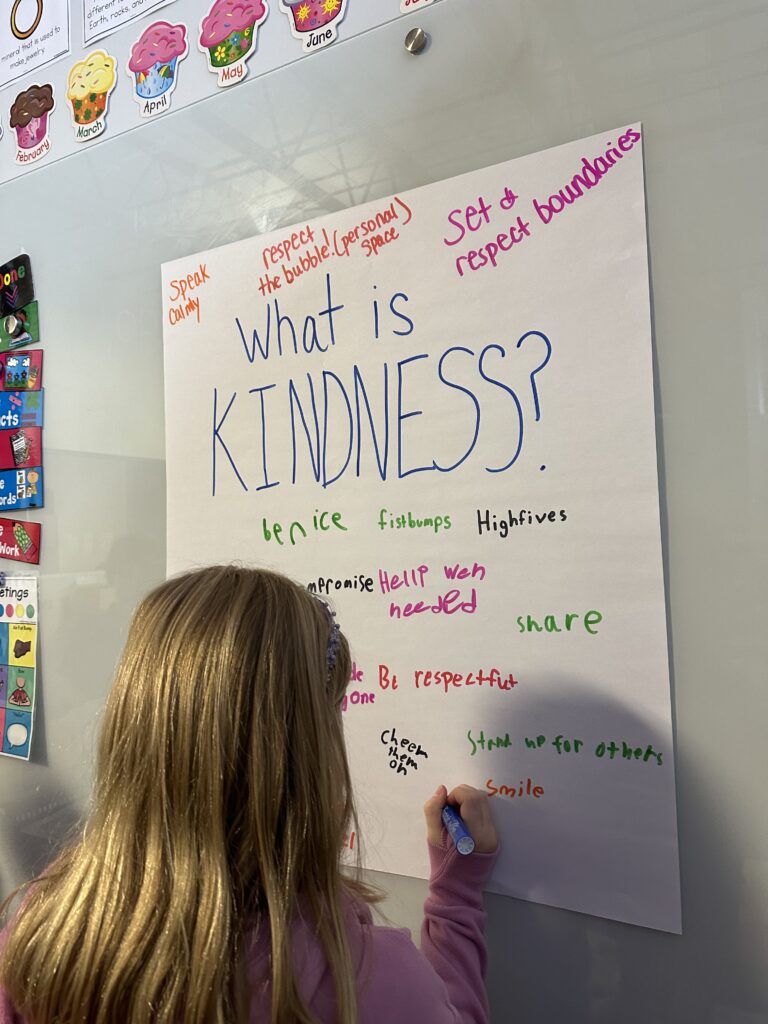 different
Earth, rocks, and
mineral that is used to
make jewelry.
February
March
April
May
June
Speak
calmly
respect
the bubble! (personal)
space
set &
respect boundaries
What is
KINDNESS?
be nice fistbumps Highfives
mpromise Hellp weh
needed
share
de Be respectful
yone
Cheer
them
on
Stand up for others
smile
one
cts
ords
Work
etings